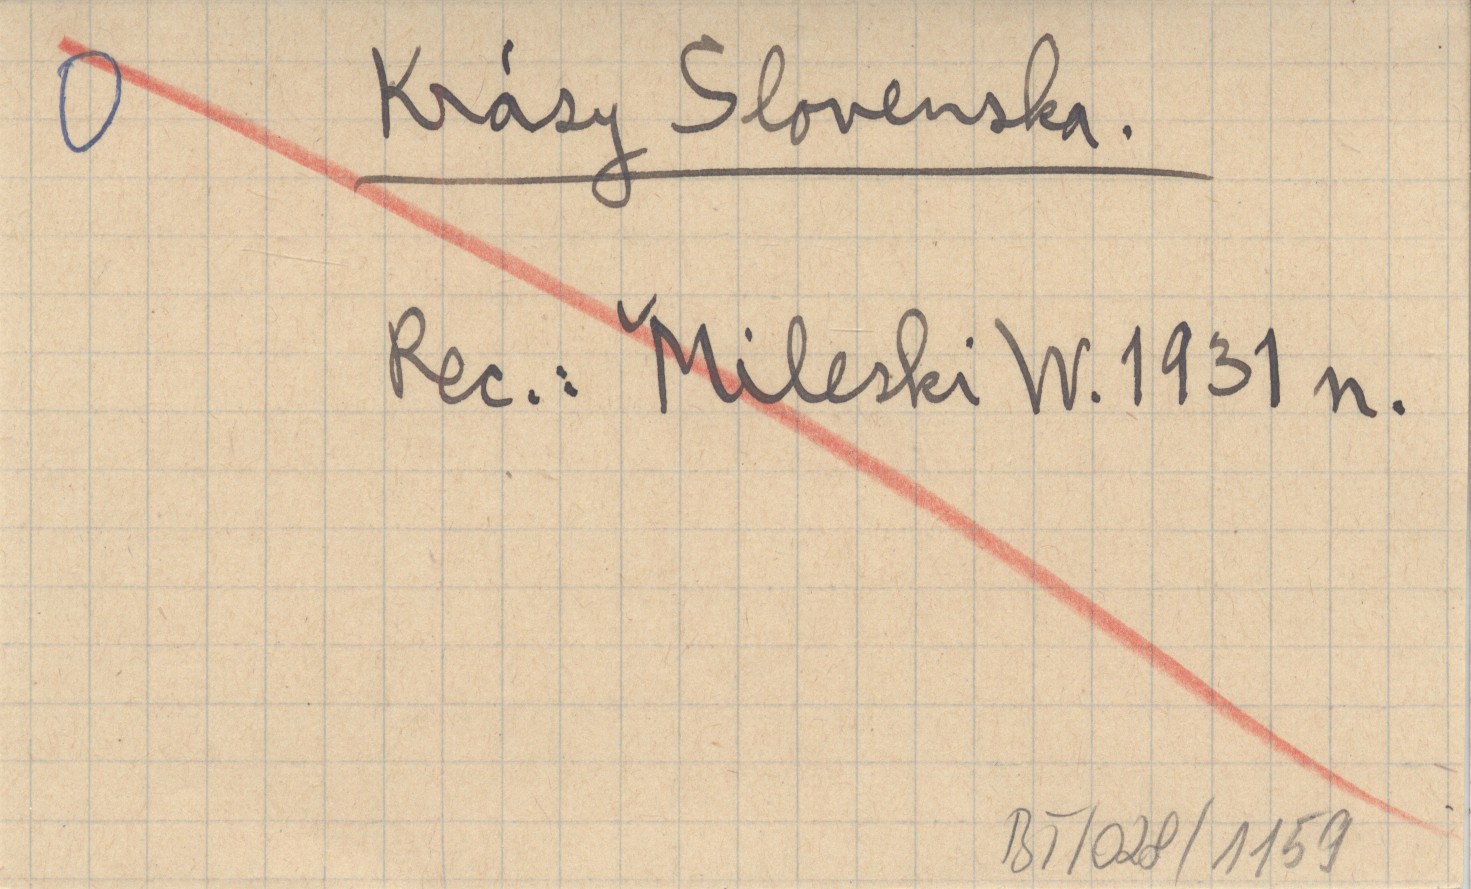 0
Krásy Slovenska.
Rec.: Mileski W. 1931 n.
BT/028/1159